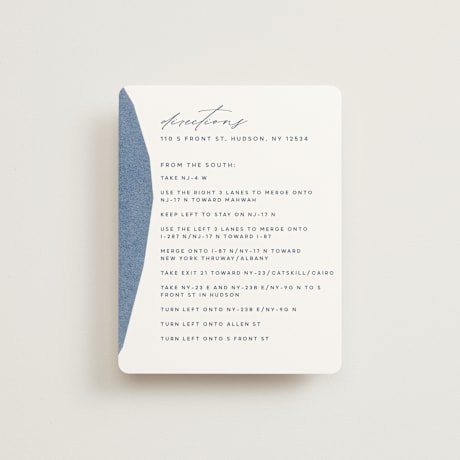 directions
110 S FRONT ST, HUDSON, NY 12534
FROM THE SOUTH:
TAKE NJ-4 W
USE THE RIGHT 3 LANES TO MERGE ONTO
NJ-17 N TOWARD MAHWAH
KEEP LEFT TO STAY ON NJ-17 N
USE THE LEFT 3 LANES TO MERGE ONTO
I-287 N/NJ-17 N TOWARD I-87
MERGE ONTO I-87 N/NY-17 N TOWARD
NEW YORK THRUWAY/ALBANY
TAKE EXIT 21 TOWARD NY-23/CATSKILL/CAIRO
TAKE NY-23 E AND NY-23B E/NY-9G N TO S
FRONT ST IN HUDSON
TURN LEFT ONTO NY-23B E/NY-9G N
TURN LEFT ONTO ALLEN ST
TURN LEFT ONTO S FRONT ST